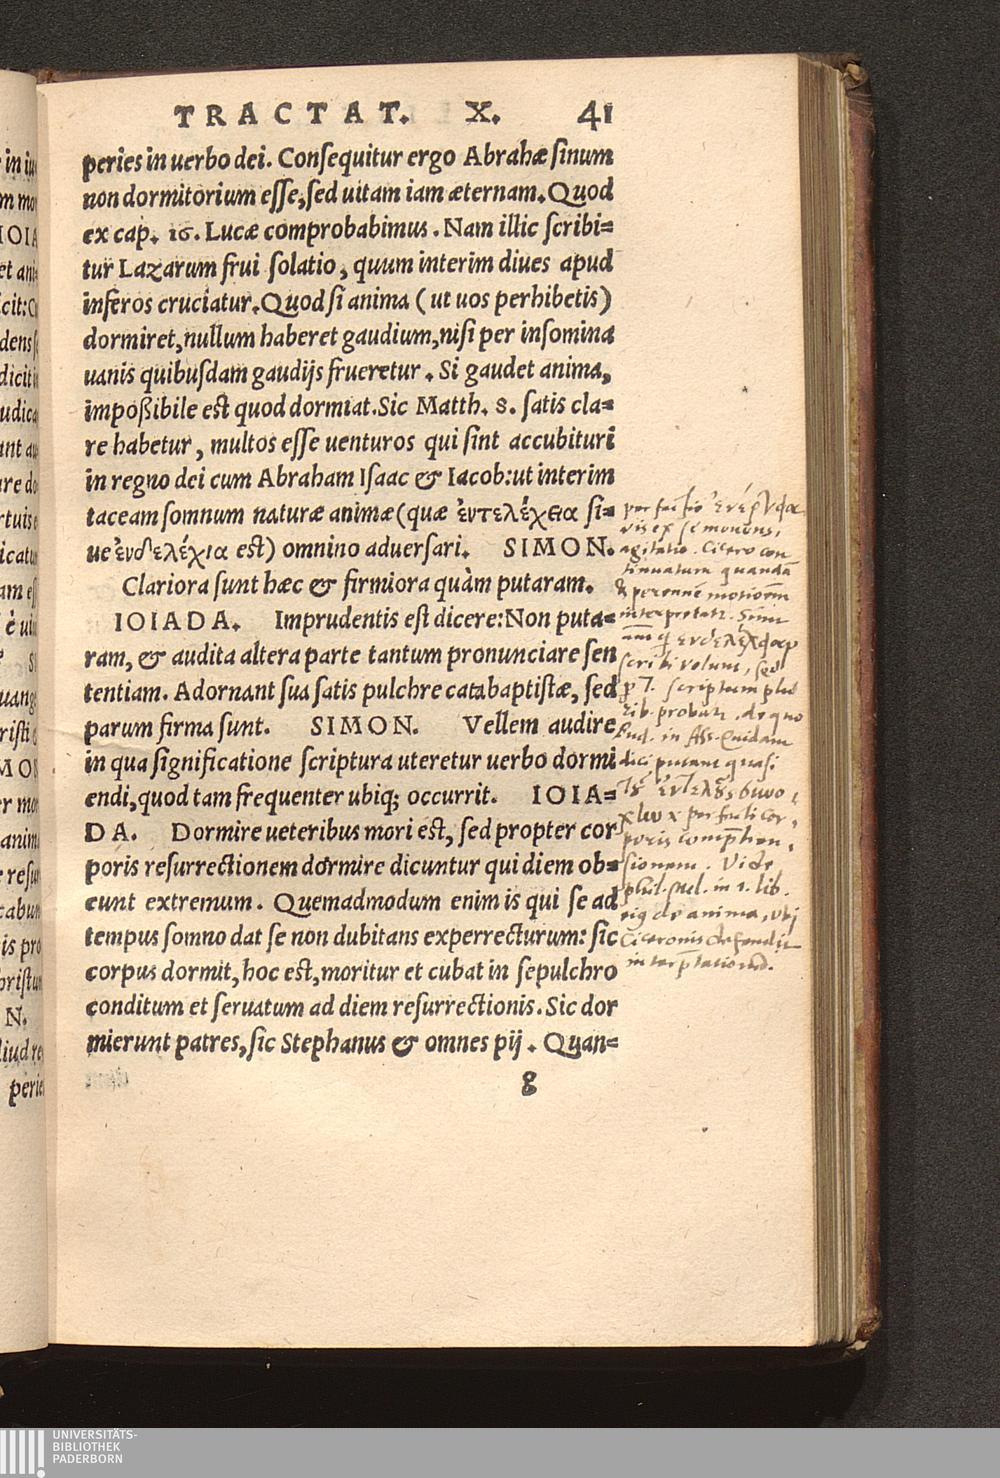 TRACTAT. X. 41
peries in uerbo dei. Consequitur ergo Abrahæ sinum
non dormitorium esse, sed uitam iam æternam. Quod
ex cap. 16. Lucæ comprobabimus. Nam illic scribi=
tur Lazarum frui solatio, quum interim diues apud
inferos cruciatur. Quod si anima (ut uos perhibetis)
dormiret, nullum haberet gaudium, nisi per insomina
uanis quibusdam gaudijs frueretur. Si gaudet anima,
impoßibile est quod dormiat. Sic Matth. 8. satis cla=
re habetur, multos esse uenturos qui sint accubituri
in regno dei cum Abraham Isaac & Iacob: ut interim
taceam somnum naturæ animæ (quæ ἐντελέχεια si=
ue ἐνδελέχια est) omnino aduersari. SIMON.
Clariora sunt hæc & firmiora quàm putaram.
IOIADA. Imprudentis est dicere: Non puta=
ram, & audita altera parte tantum pronunciare sen
tentiam. Adornant sua satis pulchre catabaptistæ, sed
parum firma sunt. SIMON. Vellem audire
in qua significatione scriptura uteretur uerbo dormi
endi, quod tam frequenter ubiq; occurrit. IOIA=
DA. Dormire ueteribus mori est, sed propter cor
poris resurrectionem dormire dicuntur qui diem ob=
eunt extremum. Quemadmodum enim is qui se ad
tempus somno dat se non dubitans experrecturum: sic
corpus dormit, hoc est, moritur et cubat in sepulchro
conditum et seruatum ad diem resurrectionis. Sic dor
mierunt patres, sic Stephanus & omnes pij. Quan=
g
agitatio. Cicero con
tinuatam quandā
& perennē motionem
scribi volunt, sed
scriptum
probatur. de quo
Bud. in Ass. Quidam
dici putant quasi
perfecti cor
poris
sionem. Vide
in 1. lib.
de anima, ubi
Ciceronis defendit
UNIVERSITÄTS-
BIBLIOTHEK
PADERBORN